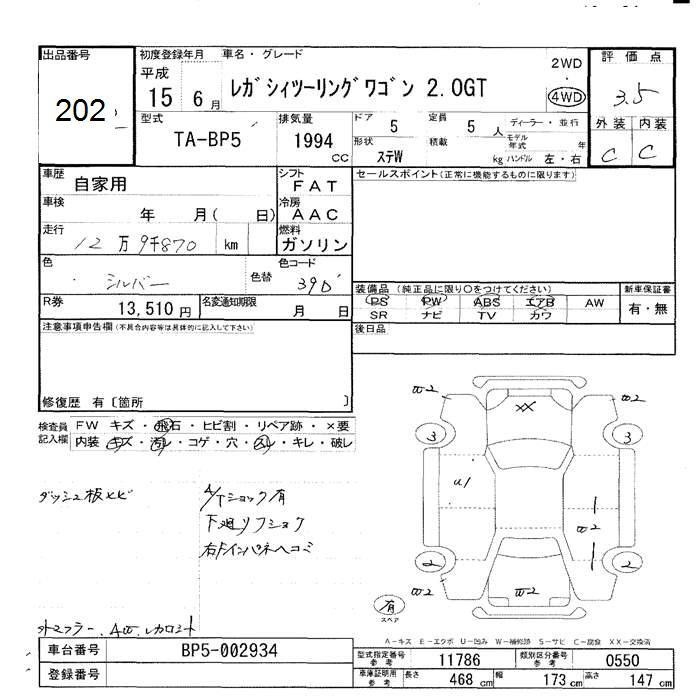 出品番号 初度登録年月 車名・グレード 評価点
202 平成 15 6月 レガシィツーリングワゴン 2.0GT 2WD 4WD 3.5
型式 排気量 ドア 5 定員 5人 ディーラー・並行 外装 内装
TA-BP5 1994 cc 形状 ステW 積載 kg モデル年式 年 ハンドル 左・右 C C
車歴 自家用 シフト FAT セールスポイント(正常に機能するものに限ります)
車検 年 月( 日) 冷房 AAC
走行 12万9千870 km 燃料 ガソリン
色 シルバー 色替 色コード 390
装備品(純正品に限り○をつけてください) 新車保証書
R券 13,510円 名変通知期限 月 日 PS PW ABS エアB AW 有・無
SR ナビ TV カワ
注意事項申告欄(不具合内容等は具体的に記入して下さい) 後日品
修復歴 有〔箇所 〕
検査員記入欄 FW キズ・飛石・ヒビ割・リペア跡・×要
内装 キズ・汚れ・コゲ・穴・スレ・キレ・破レ
W2 XX W2
3 3
ダッシュ板ヒビ A/Tショック有 U1
下廻リフショク W2
右Fインパネヘコミ
2 2
W2 W2 W2
有
スペア
A-キズ E-エクボ U-凹み W-補修跡 S-サビ C-腐食 XX-交換済
車台番号 BP5-002934 型式指定番号 参考 11786 類別区分番号 参考 0550
登録番号 車庫証明用 参考 長さ 468 cm 幅 173 cm 高さ 147 cm